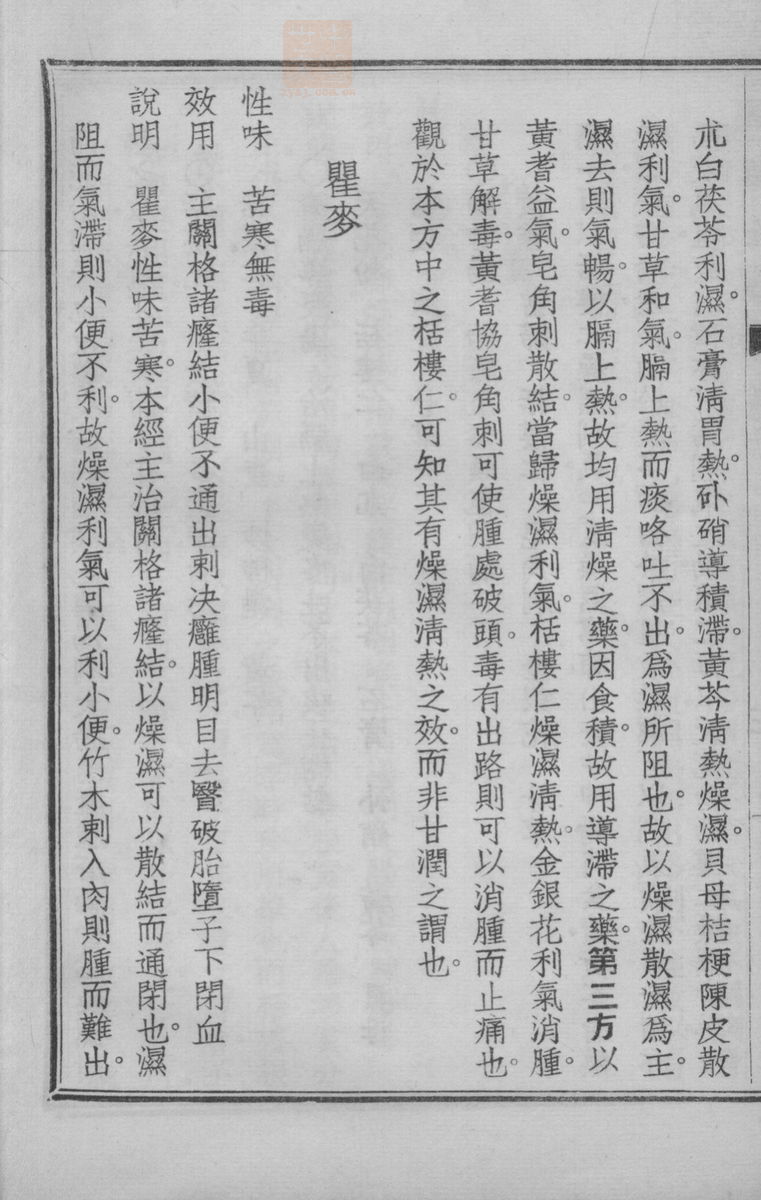 朮白茯苓利濕。石膏清胃熱。朴硝導積滯。黃芩清熱燥濕。貝母桔梗陳皮散
濕利氣。甘草和氣。膈上熱而痰咯吐不出。爲濕所阻也。故以燥濕散濕爲主。
濕去則氣暢。以膈上熱。故均用清燥之藥。因食積。故用導滯之藥。第三方以
黃耆益氣。皂角刺散結。當歸燥濕利氣。栝樓仁燥濕清熱。金銀花利氣消腫。
甘草解毒。黃耆協皂角刺可使腫處破頭。毒有出路則可以消腫而止痛也。
觀於本方中之栝樓仁。可知其有燥濕清熱之效。而非甘潤之謂也。
瞿麥
性味　苦寒無毒
效用　主關格諸癃結小便不通出刺决癰腫明目去翳破胎墮子下閉血
說明　瞿麥性味苦寒。本經主治關格諸癃結。以燥濕可以散結而通閉也。濕
阻而氣滯則小便不利。故燥濕利氣可以利小便。竹木刺入肉則腫而難出。